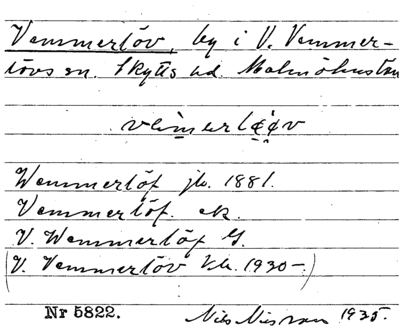 Vemmerlöv, by i V. Vemmer-
lövs sn. Skytts hd. Malmöhus län
Wemmerlöf jb. 1881.
Vemmerlöf. ek.
V. Wemmerlöf G.
(V. Vemmerlöv kb. 1930-.)
Nr 5822. Nils Nilsson 1935.